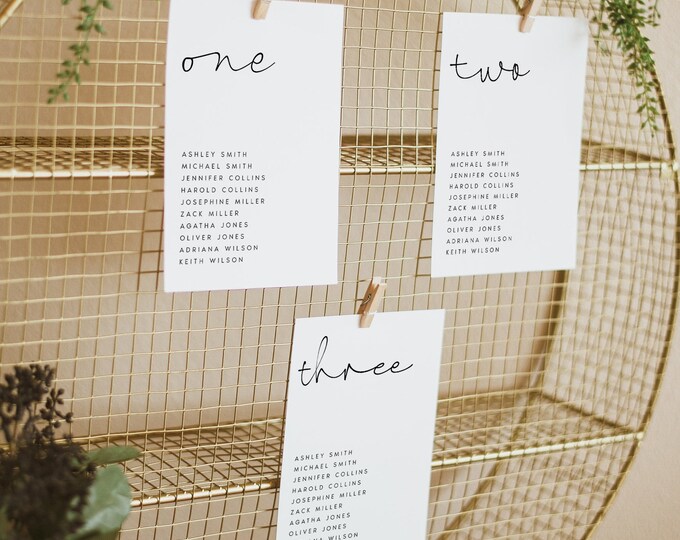 one
ASHLEY SMITH
MICHAEL SMITH
JENNIFER COLLINS
HAROLD COLLINS
JOSEPHINE MILLER
ZACK MILLER
AGATHA JONES
OLIVER JONES
ADRIANA WILSON
KEITH WILSON
two
ASHLEY SMITH
MICHAEL SMITH
JENNIFER COLLINS
HAROLD COLLINS
JOSEPHINE MILLER
ZACK MILLER
AGATHA JONES
OLIVER JONES
ADRIANA WILSON
KEITH WILSON
three
ASHLEY SMITH
MICHAEL SMITH
JENNIFER COLLINS
HAROLD COLLINS
JOSEPHINE MILLER
ZACK MILLER
AGATHA JONES
OLIVER JONES
WILSON